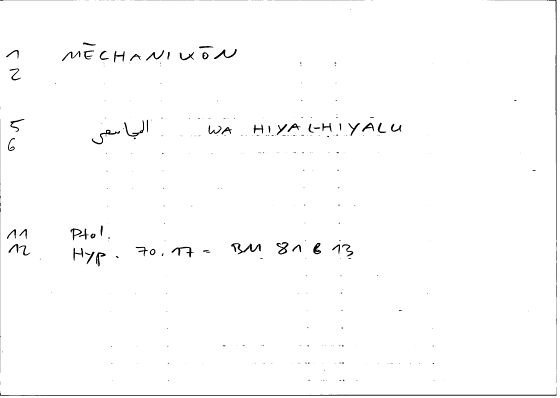 1 MĒCHANIKŌN
2
5 WA HIYAL-HIYALU
6
11 Ptol.
12 Hyp. 70.17 = BM 81 b 13